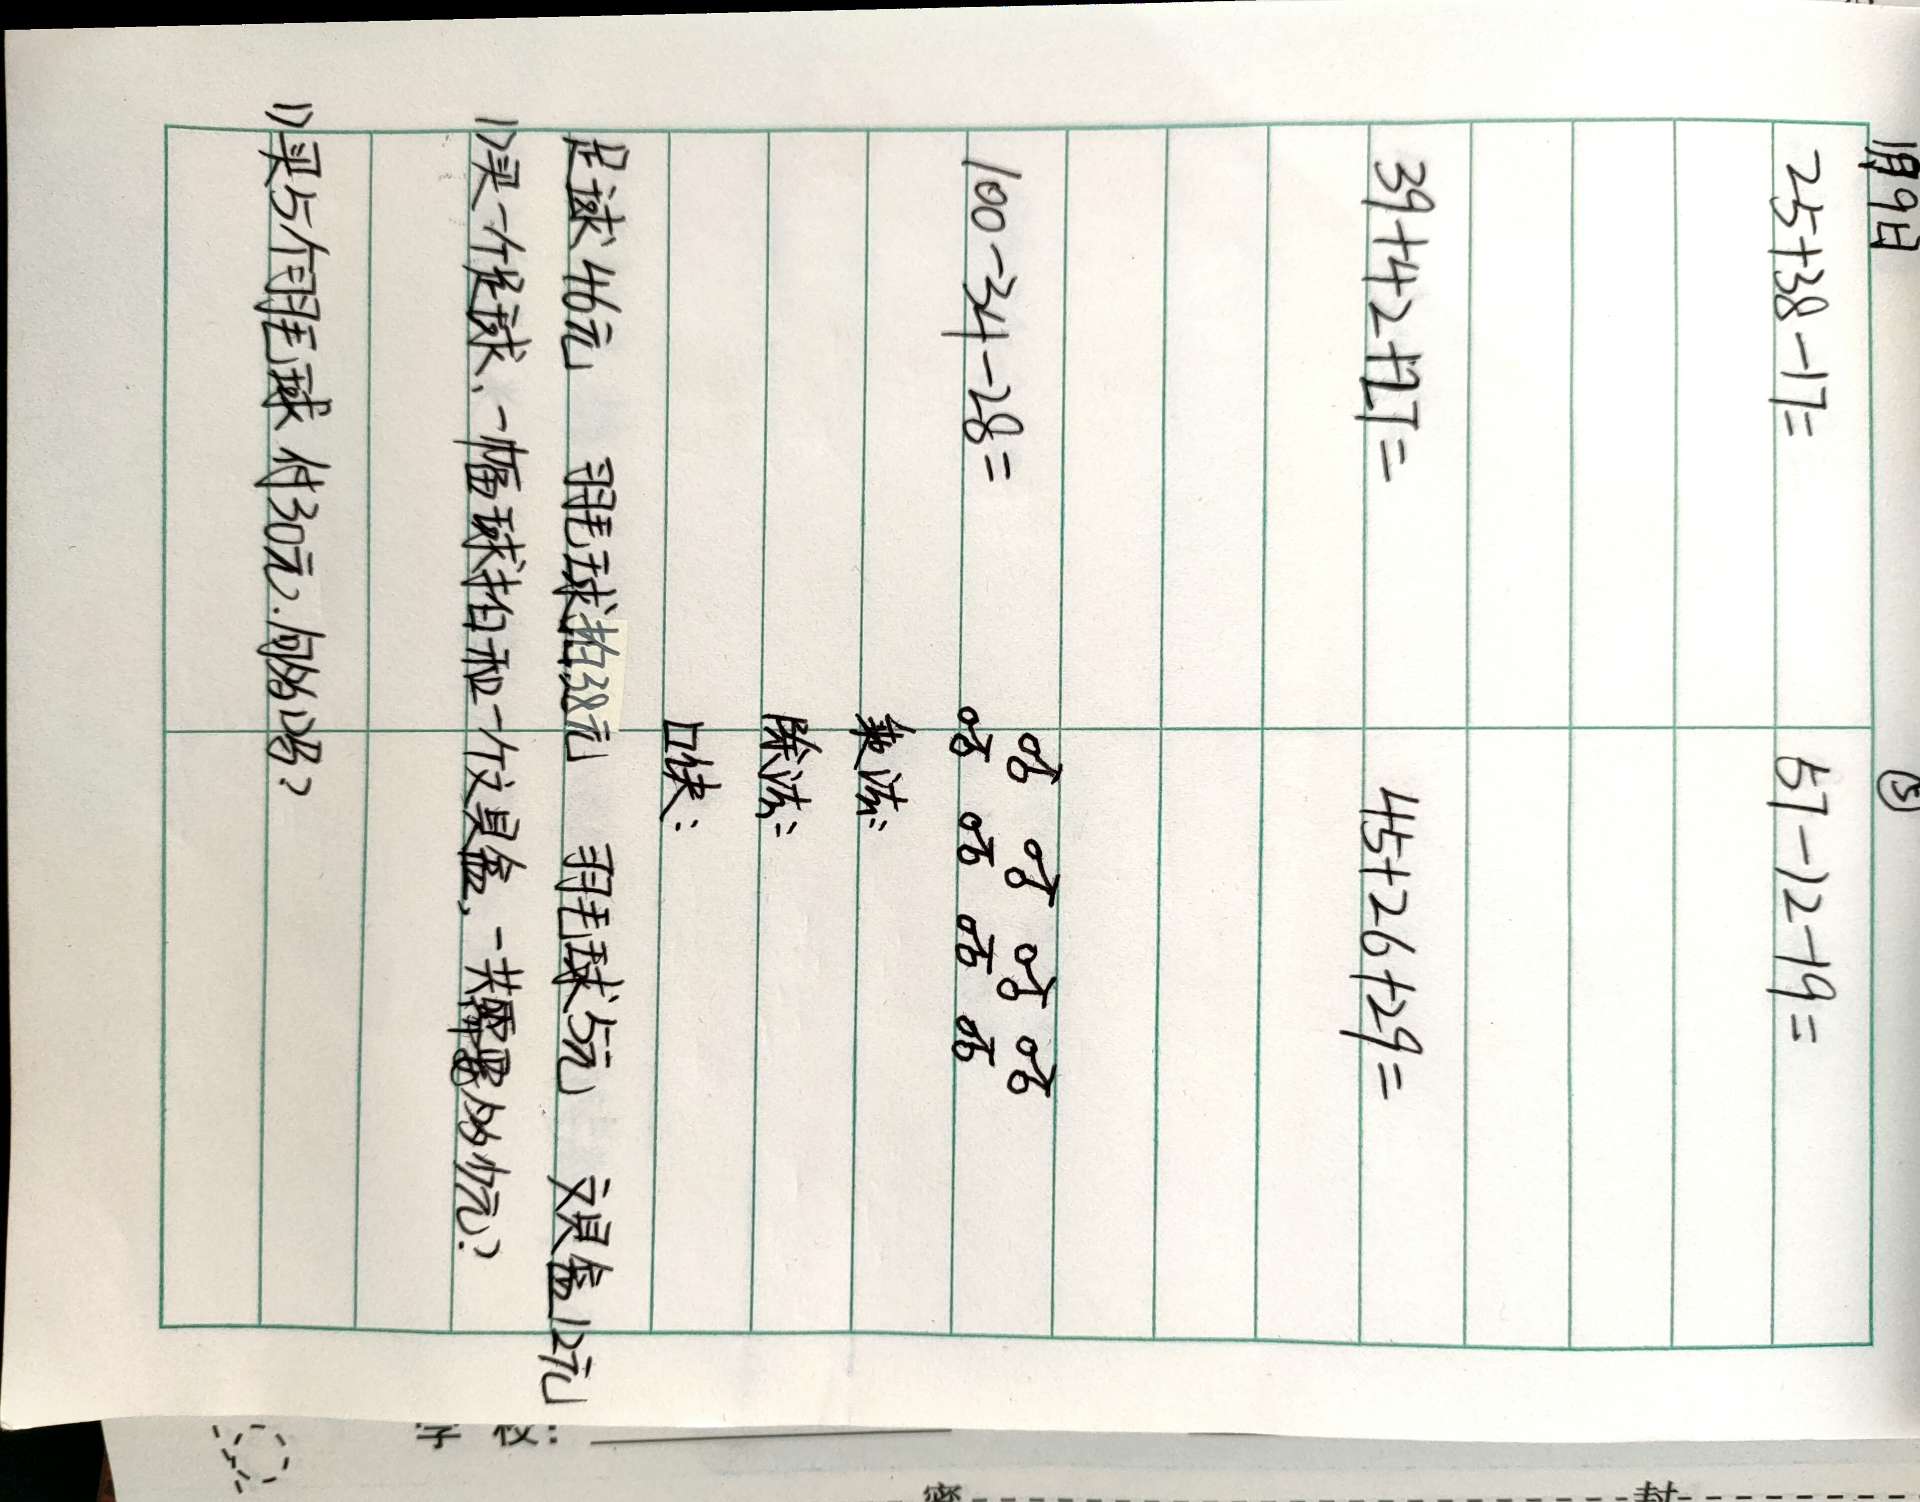 1月9日 ⑤
25+38-17= 57-12-19=
39+42+27= 45+26+29=
100-34-28=
乘法:
除法:
口诀:
足球46元 羽毛球拍38元 羽毛球5元 文具盒12元
1)买一个足球、一幅球拍和一个文具盒,一共需要多少元?
1)买5个羽毛球付30元.向多吗?
学 校:
密 封